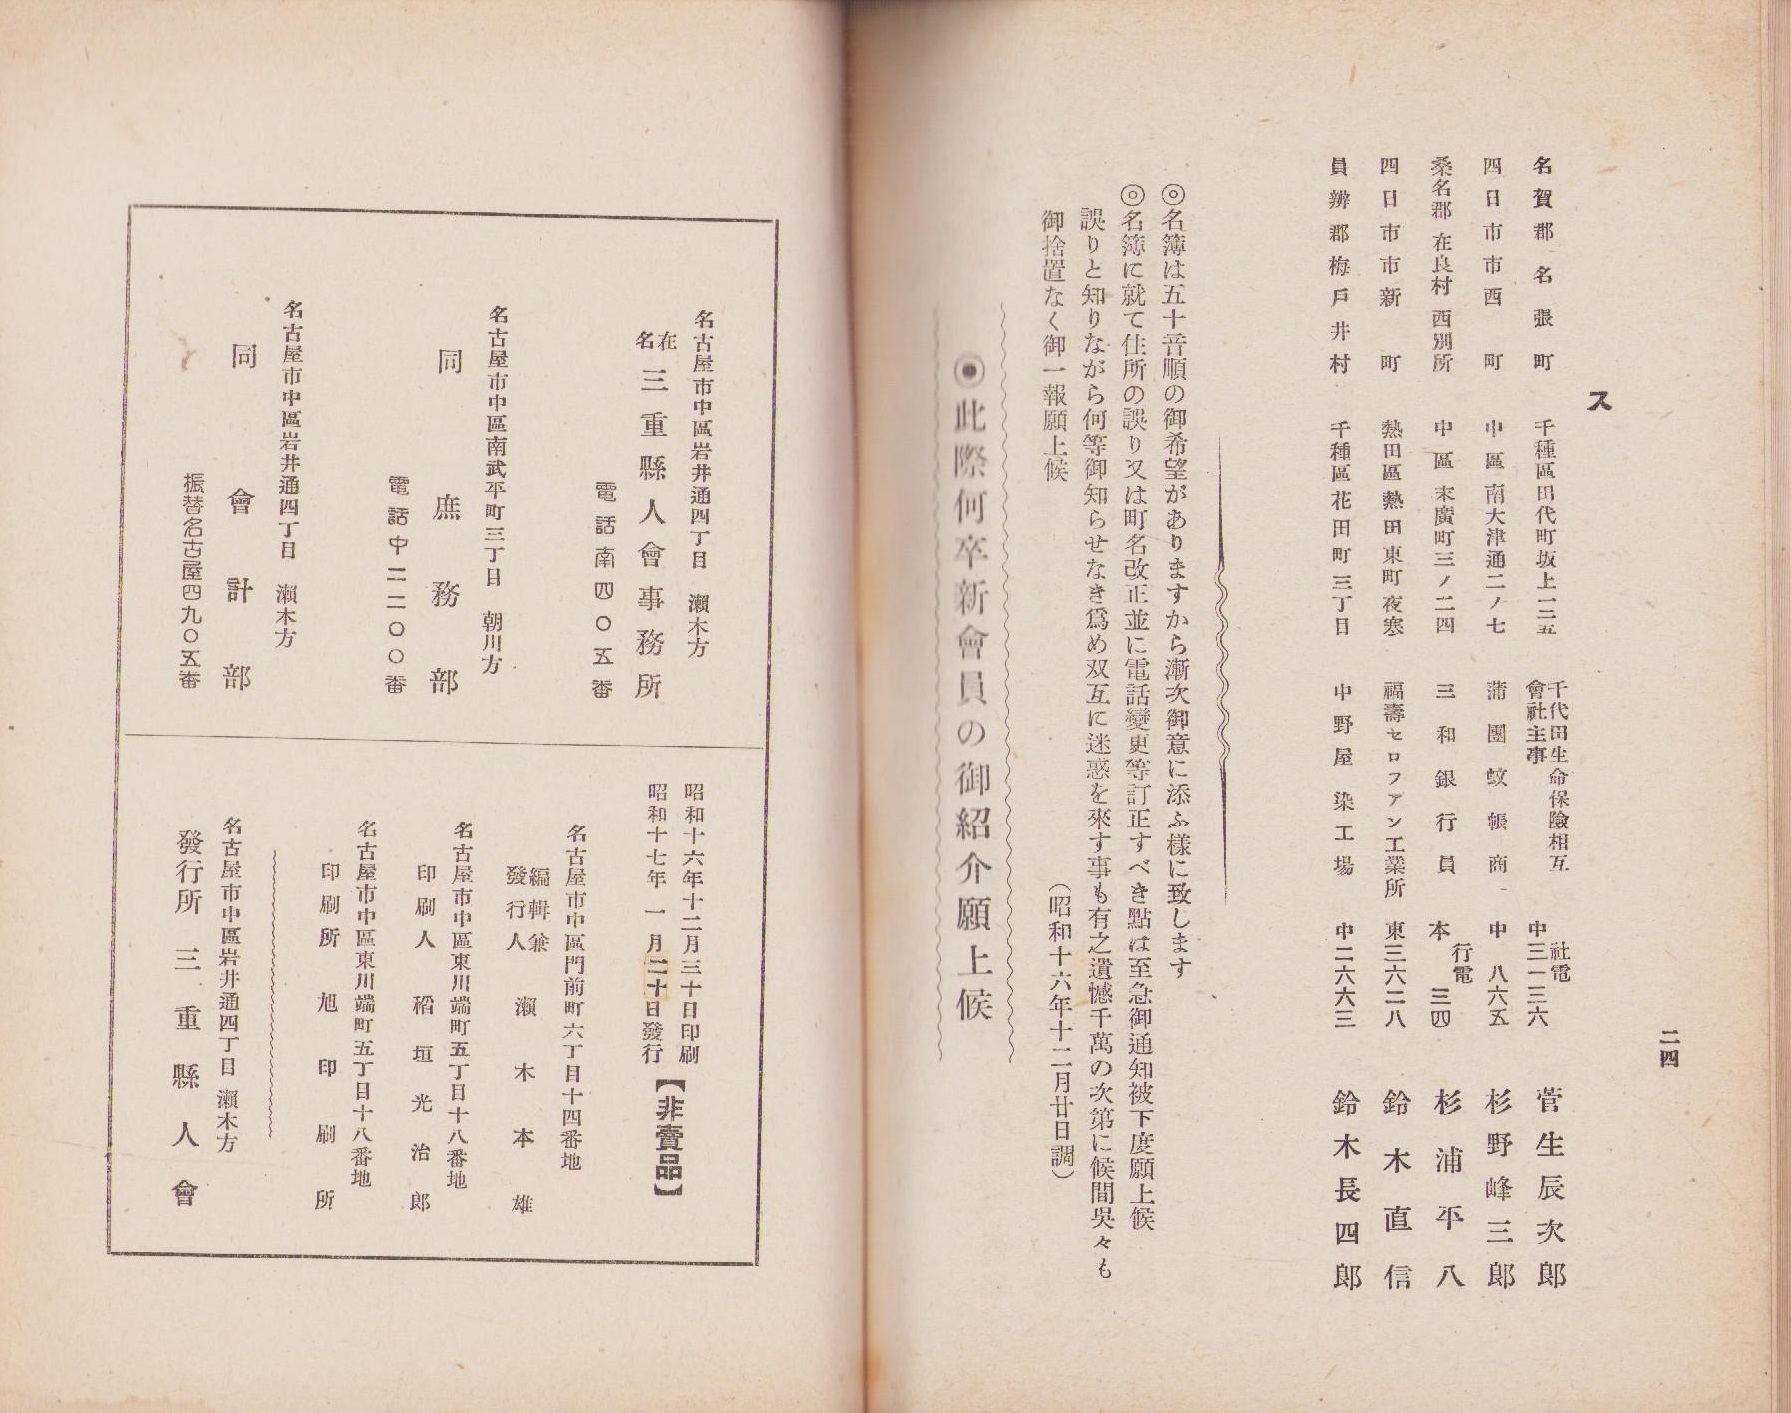 二四
ス
名賀郡名張町 千種區田代町坂上一三五 千代田生命保險相互會社主事 社電中三一三六 菅生辰次郎
四日市市西町 中區南大津通二ノ七 蒲團蚊帳商 中八六五 杉野峰三郎
桑名郡在良村西別所 中區末廣町三ノ二四 三和銀行員 行電本三四 杉浦平八
四日市市新町 熱田區熱田東町夜寒 福壽セロフアン工業所 東三六二八 鈴木直信
員辨郡梅戸井村 千種區花田町三丁目 中野屋染工場 中二六六三 鈴木長四郎
◎名簿は五十音順の御希望がありますから漸次御意に添ふ樣に致します
◎名簿に就て住所の誤り又は町名改正並に電話變更等訂正すべき點は至急御通知被下度願上候
誤りと知りながら何等御知らせなき爲め双互に迷惑を來す事も有之遺憾千萬の次第に候間吳々も
御捨置なく御一報願上候 (昭和十六年十二月廿日調)
◉此際何卒新會員の御紹介願上候
名古屋市中區岩井通四丁目 瀨木方
在名 三重縣人會事務所
電話南四〇五番
名古屋市中區南武平町三丁目 朝川方
同庶務部
電話中二二〇〇番
名古屋市中區岩井通四丁目 瀨木方
同會計部
振替名古屋四九〇五番
昭和十六年十二月三十日印刷
昭和十七年一月二十日發行
【非賣品】
名古屋市中區門前町六丁目十四番地
編輯兼發行人 瀨木本雄
名古屋市中區東川端町五丁目十八番地
印刷人 稻垣光治郎
名古屋市中區東川端町五丁目十八番地
印刷所 旭印刷所
名古屋市中區岩井通四丁目 瀨木方
發行所 三重縣人會